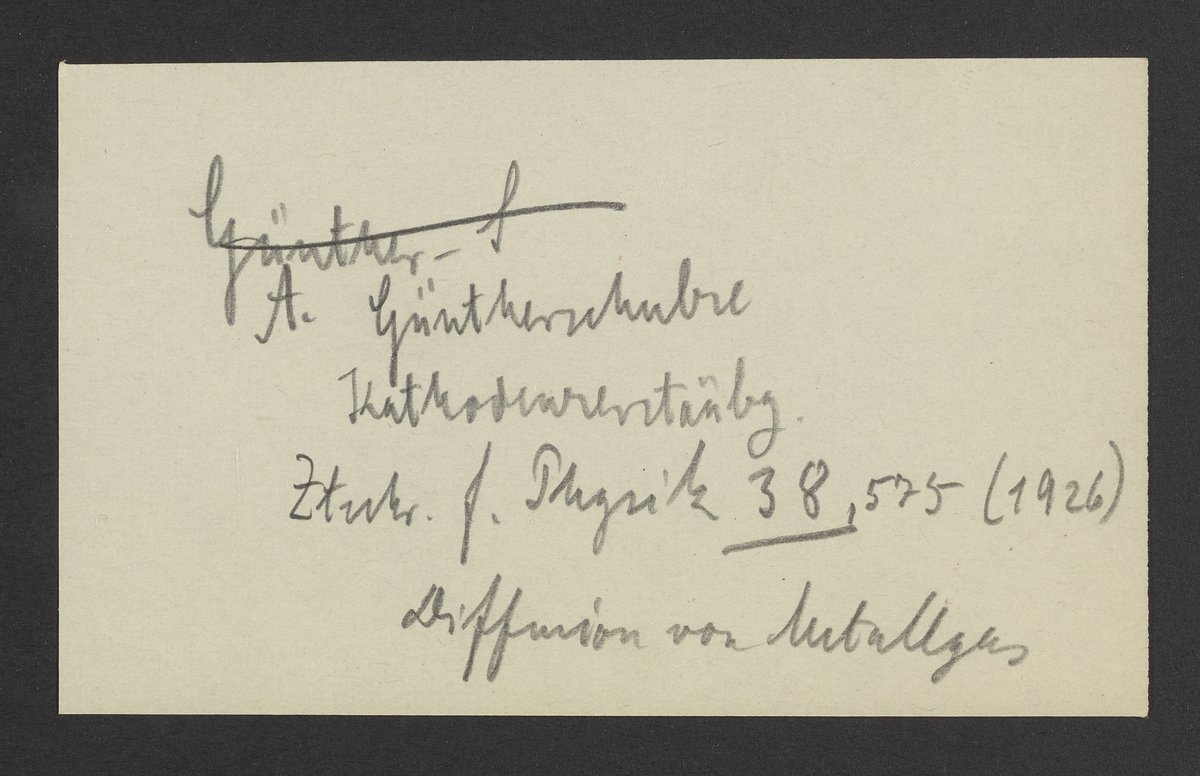 Günther-S
A. Güntherschulze
Kathodenzerstäubg.
Ztschr. f. Physik 38, 575 (1926)
Diffusion von Metallgas